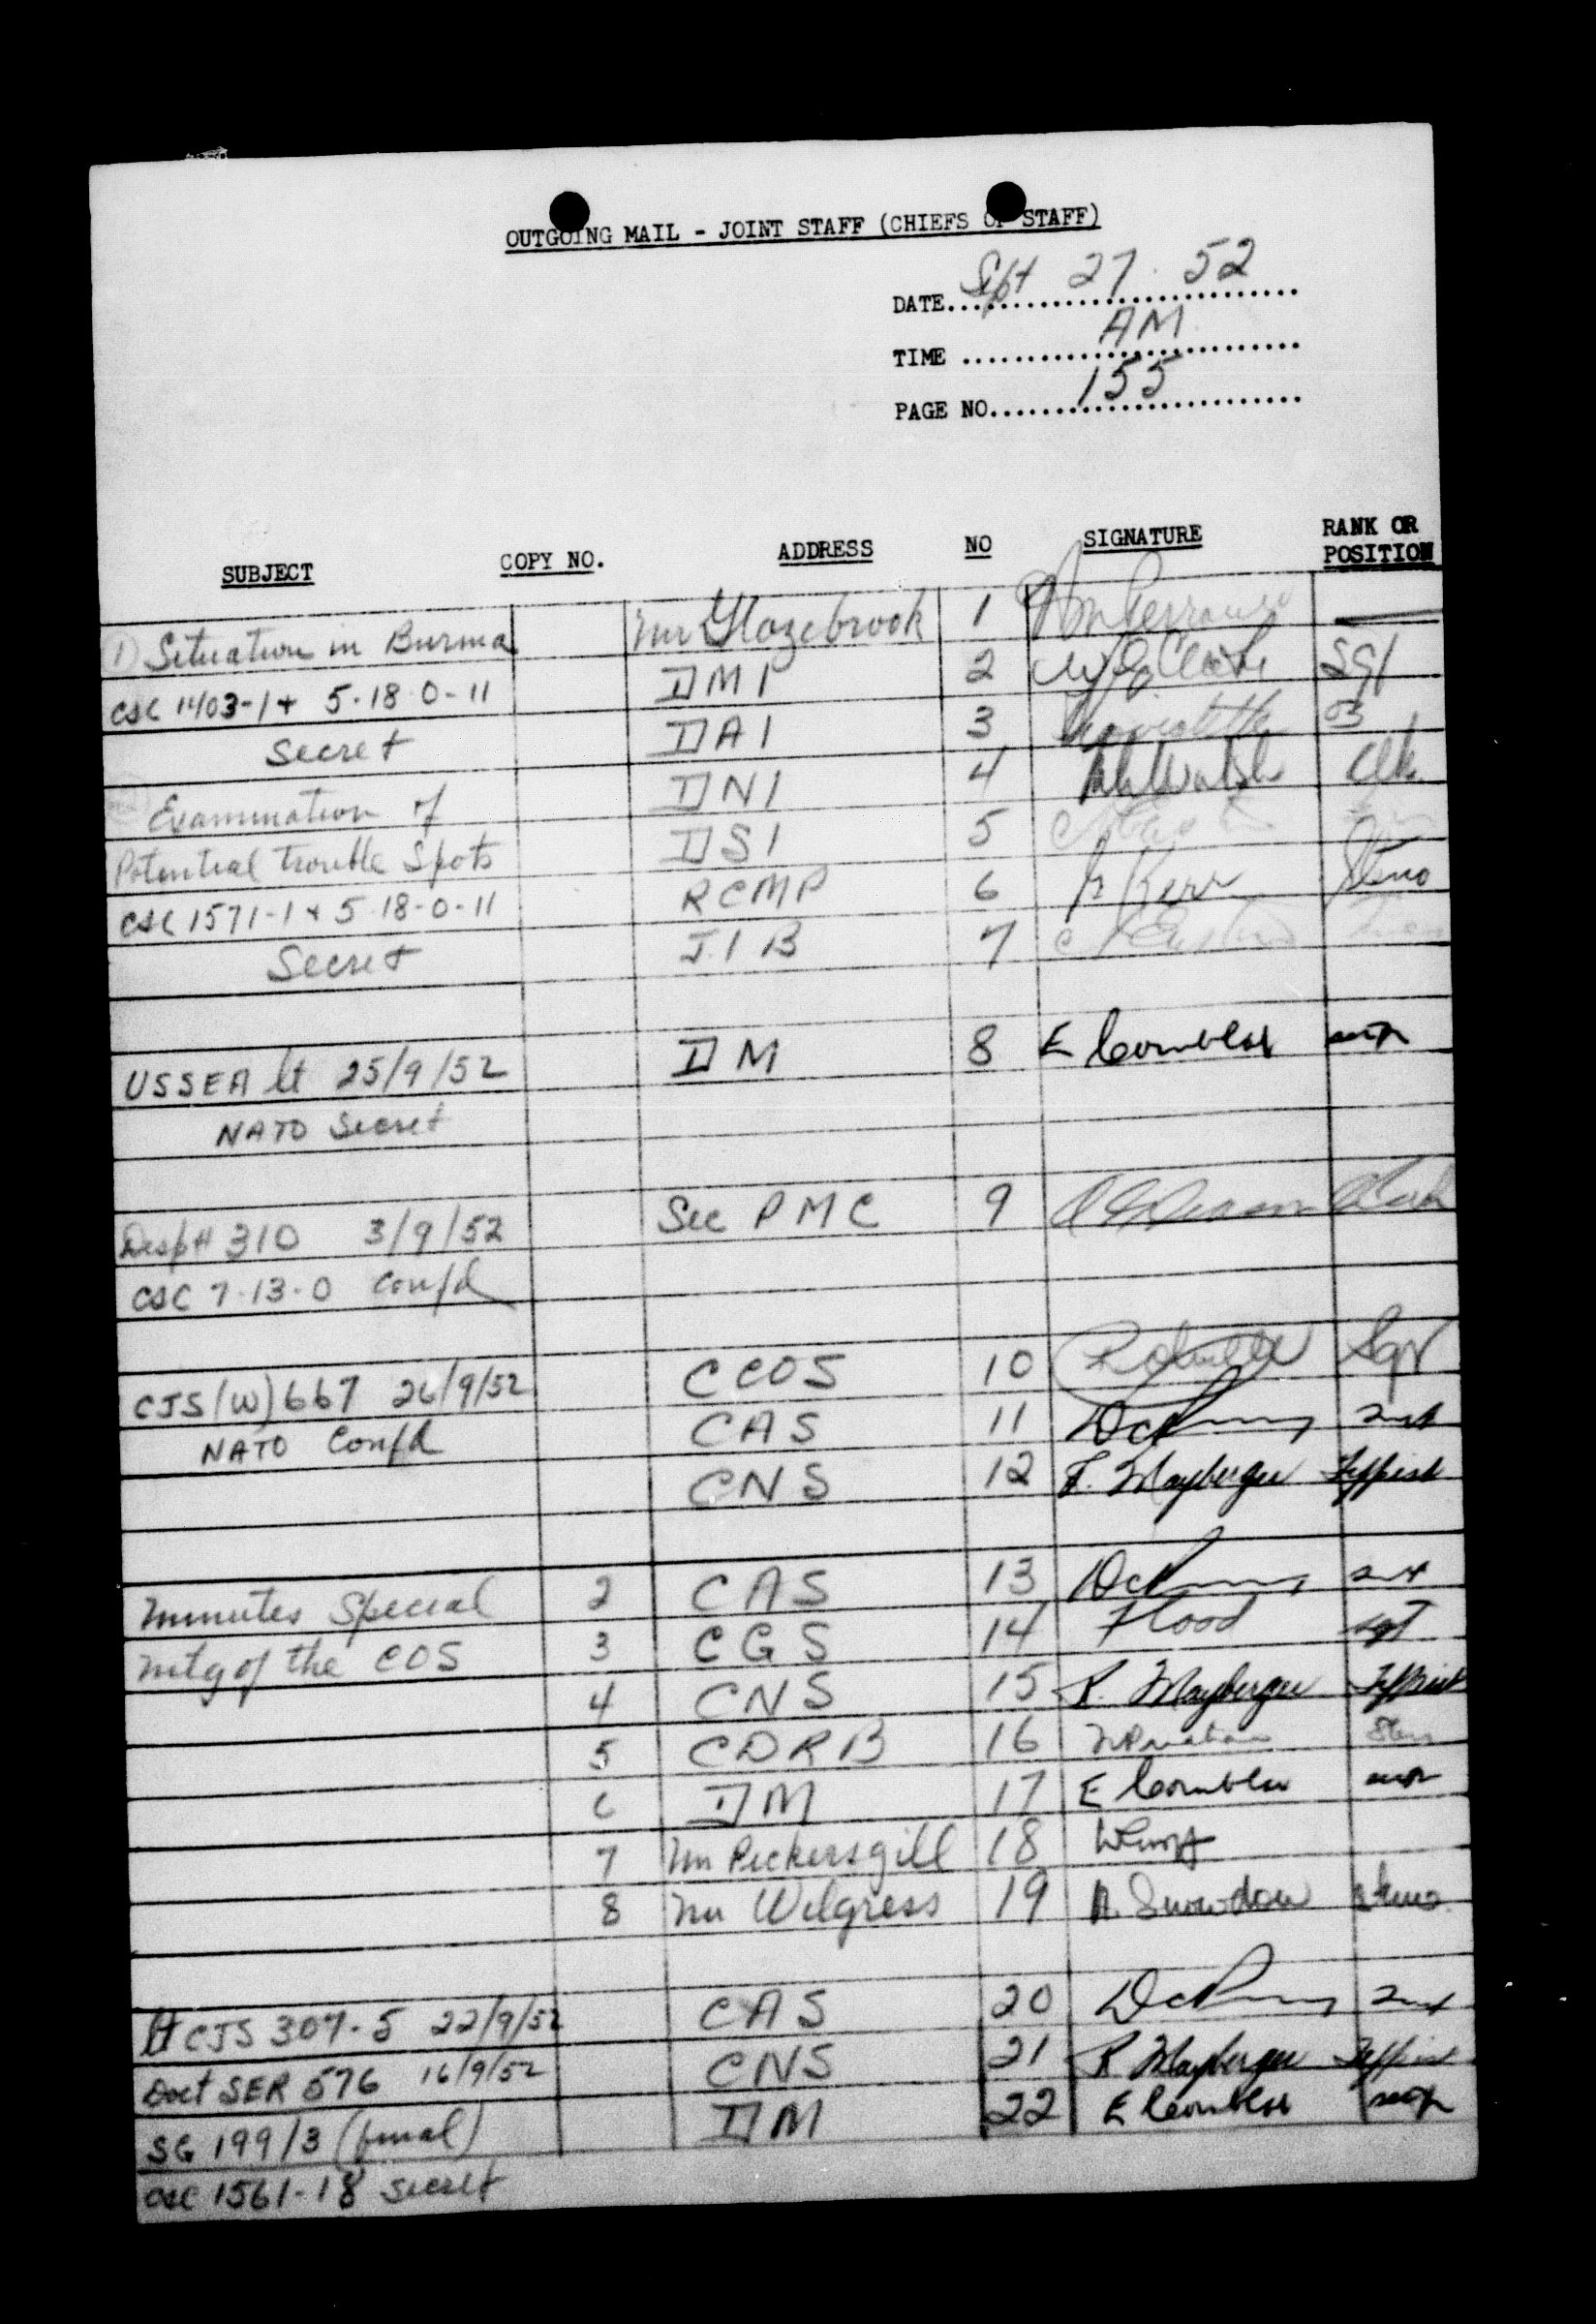 OUTGOING MAIL - JOINT STAFF (CHIEFS OF STAFF)
DATE Sept 27. 52
TIME AM
PAGE NO. 155
SUBJECT COPY NO. ADDRESS NO SIGNATURE RANK OR POSITION
1) Situation in Burma Mr Glazebrook 1
CSC 1403-1 + 5-18-0-11 DMI 2 Sgt
Secret DAI 3
Examination of DNI 4 Clk.
Potential Trouble Spots DSI 5
CSC 1571-1 + 5-18-0-11 RCMP 6 Kerr Steno
Secret J.I B 7
USSEA lt 25/9/52 DM 8 E
NATO Secret
Desp# 310 3/9/52 Sec PMC 9 Clerk
CSC 7-13-0 Confd
CJS(W)667 26/9/52 CCOS 10 Sgt
NATO Confd CAS 11
CNS 12 Mayberger Typist
Minutes Special 2 CAS 13
Mtg of the COS 3 CGS 14 Flood Sgt
4 CNS 15 R. Mayberger Typist
5 CDRB 16
6 DM 17 E
7 Mr Pickersgill 18
8 Mr Wilgress 19 Snowdon Steno.
lt CJS 307-5 22/9/52 CAS 20
Doct SER 576 16/9/52 CNS 21 R Mayberger Typist
SG 199/3 (final) DM 22 E
CSC 1561-18 Secret